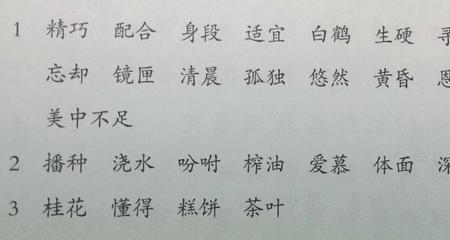 1 精巧 配合 身段 适宜 白鹤 生硬
忘却 镜匣 清晨 孤独 悠然 黄昏
美中不足
2 播种 浇水 吩咐 榨油 爱慕 体面
3 桂花 懂得 糕饼 茶叶